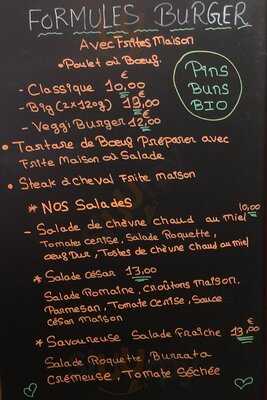 FORMULES BURGER
Avec Frites Maison
• Poulet ou Boeuf.
- Classique 10,00 €
- Big (2x120g) 19,00 €
- Veggi Burger 12,00 €
Pins
Buns
BIO
• Tartare de Boeuf Préparer avec
Frite Maison où Salade
• Steak à cheval Frite maison
* NOS Salades
- Salade de chèvre chaud au miel 10,00
Tomates cerise, Salade Roquette,
oeuf Dur, Tostes de chèvre chaud au miel
* Salade César 13,00
Salade Romaine, Croûtons Maison,
Parmesan, Tomate Cerise, Sauce
César Maison
* Savoureuse Salade Fraîche 13,00 €
Salade Roquette, Burrata
Crémeuse, Tomate Séchée